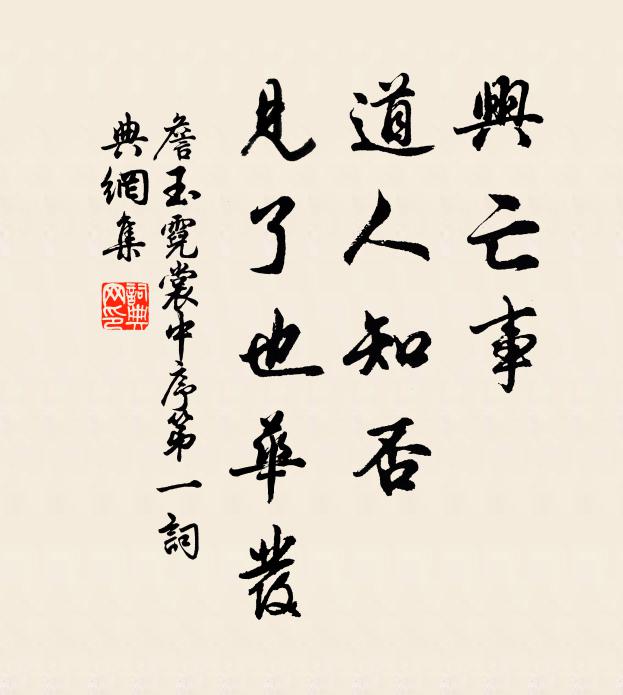 興亡事
道人知否
見了也華髮
詹玉霓裳中序第一詞
典網集
詞典网印